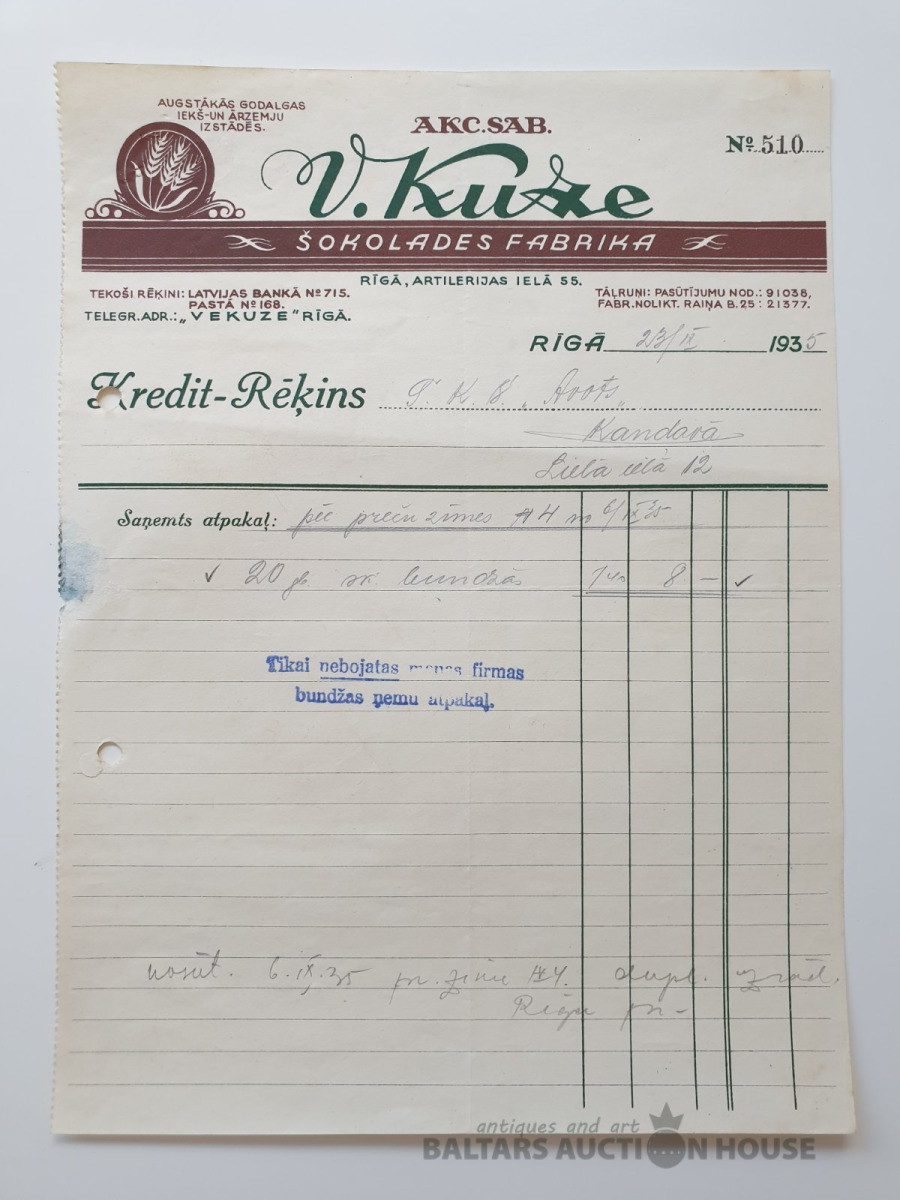 AUGSTĀKĀS GODALGAS
IEKŠ-UN ĀRZEMJU
IZSTĀDĒS.
AKC. SAB.
V. Kuze
ŠOKOLADES FABRIKA
Nº 510
RĪGĀ, ARTILERIJAS IELĀ 55.
TEKOŠI RĒĶINI: LATVIJAS BANKĀ Nº 715.
PASTĀ Nº 168.
TELEGR. ADR.: „VEKUZE” RĪGĀ.
TĀLRUŅI: PASŪTĪJUMU NOD.: 91038,
FABR. NOLIKT. RAIŅA B. 25: 21377.
RĪGĀ 23/IX 1935
Kredit-Rēķins „Avots„
Kandavā
Lielā ielā 12
Saņemts atpakaļ: pēc preču zīmes #4 no 6/IX 35
✓ 20 bundžās 8 — ✓
Tikai nebojatas manas firmas
bundžas ņemu atpakaļ.
nosūt. 6.IX.35 #4. dupl.
antiques and art
BALTARS AUCTION HOUSE